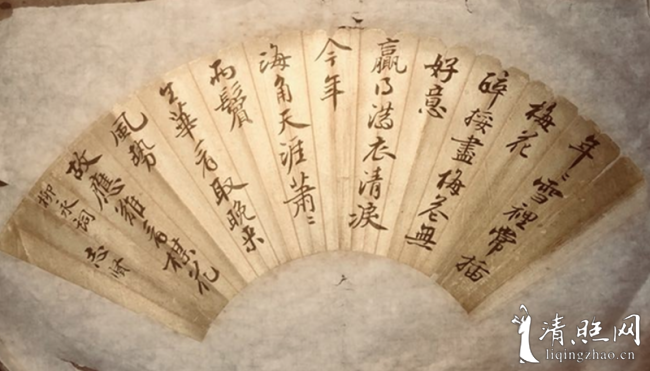 年〻雪裡常插
梅花
醉挼盡梅花無
好意
贏得滿衣清淚
今年
海角天涯蕭〻
兩鬢
生華看取晚來
風勢
故應難看梅花
柳永詞
清照网
liqingzhao.cn